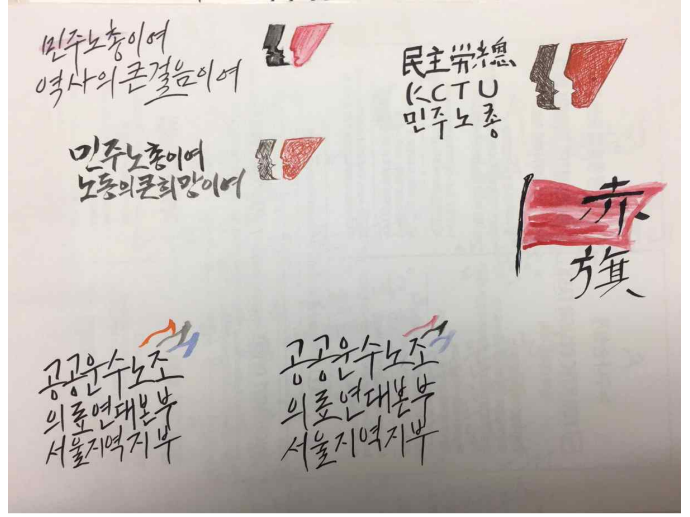 민주노총이여
역사의 큰걸음이여
民主労總
KCTU
민주노총
민주노총이여
노동의큰희망이여
赤
旗
공공운수노조
의료연대본부
서울지역지부
공공운수노조
의료연대본부
서울지역지부